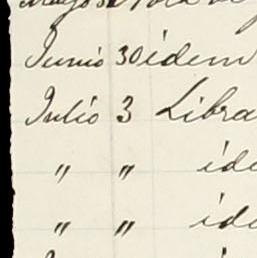 Mayo 31
Junio 30 idem
Julio 3 Libra
" " ide
" " ide